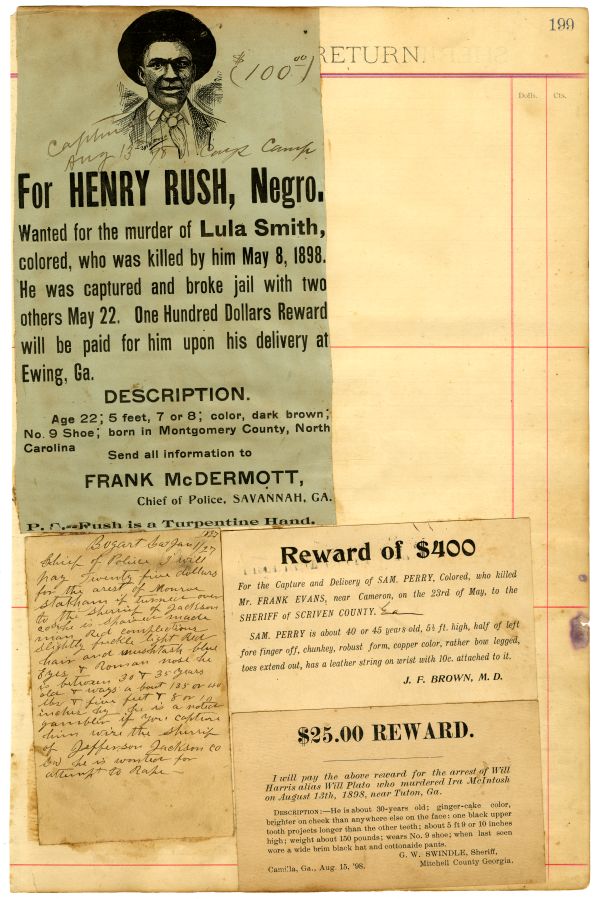 199
RETURN.
Dolls. Cts.
$(100 00)
Captured
Aug 13 98 Camp
For HENRY RUSH, Negro.
Wanted for the murder of Lula Smith,
colored, who was killed by him May 8, 1898.
He was captured and broke jail with two
others May 22. One Hundred Dollars Reward
will be paid for him upon his delivery at
Ewing, Ga.
DESCRIPTION.
Age 22; 5 feet, 7 or 8; color, dark brown;
No. 9 Shoe; born in Montgomery County, North
Carolina
Send all information to
FRANK McDERMOTT,
Chief of Police, SAVANNAH, GA.
P. S.—Rush is a Turpentine Hand.
Bogart Ga Jan
Chief of Police I will
pay Twenty five dollars
for the arrest of Monroe
Statham if turned over
to the sherrif of Jackson
co he is spare made
man Red complection
slightly freckle light Red
hair and mustash blue
Eyes & Roman nose he
is between 30 & 35 years
old & ways a bout 135 or 40
lbs & five feet & 8 or 10
inches hy he is a noted
gambler if you capture
him wire the sherrif
of Jefferson Jackson co
Ga he is wanted for
attempt to Rape
Reward of $400
For the Capture and Delivery of SAM. PERRY, Colored, who killed
Mr. FRANK EVANS, near Cameron, on the 23rd of May, to the
SHERIFF of SCRIVEN COUNTY. Ga
SAM. PERRY is about 40 or 45 years old, 5½ ft. high, half of left
fore finger off, chunkey, robust form, copper color, rather bow legged,
toes extend out, has a leather string on wrist with 10c. attached to it.
J. F. BROWN, M. D.
$25.00 REWARD.
I will pay the above reward for the arrest of Will
Harris alias Will Plato who murdered Ira McIntosh
on August 13th, 1898, near Tuton, Ga.
DESCRIPTION:—He is about 30-years old; ginger-cake color,
brighter on cheek than anywhere else on the face; one black upper
tooth projects longer than the other teeth; about 5 ft 9 or 10 inches
high; weight about 150 pounds; wears No. 9 shoe; when last seen
wore a wide brim black hat and cottonaide pants.
G. W. SWINDLE, Sheriff,
Camilla, Ga., Aug. 15, '98. Mitchell County Georgia.